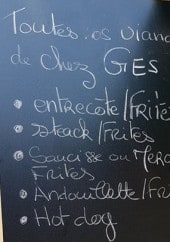 Toutes les vian
de chez GES
• entrecôte/Frites
• steack/Frites
• Saucisse ou MERG
Frites
• Andouillette/FR
• Hot dog